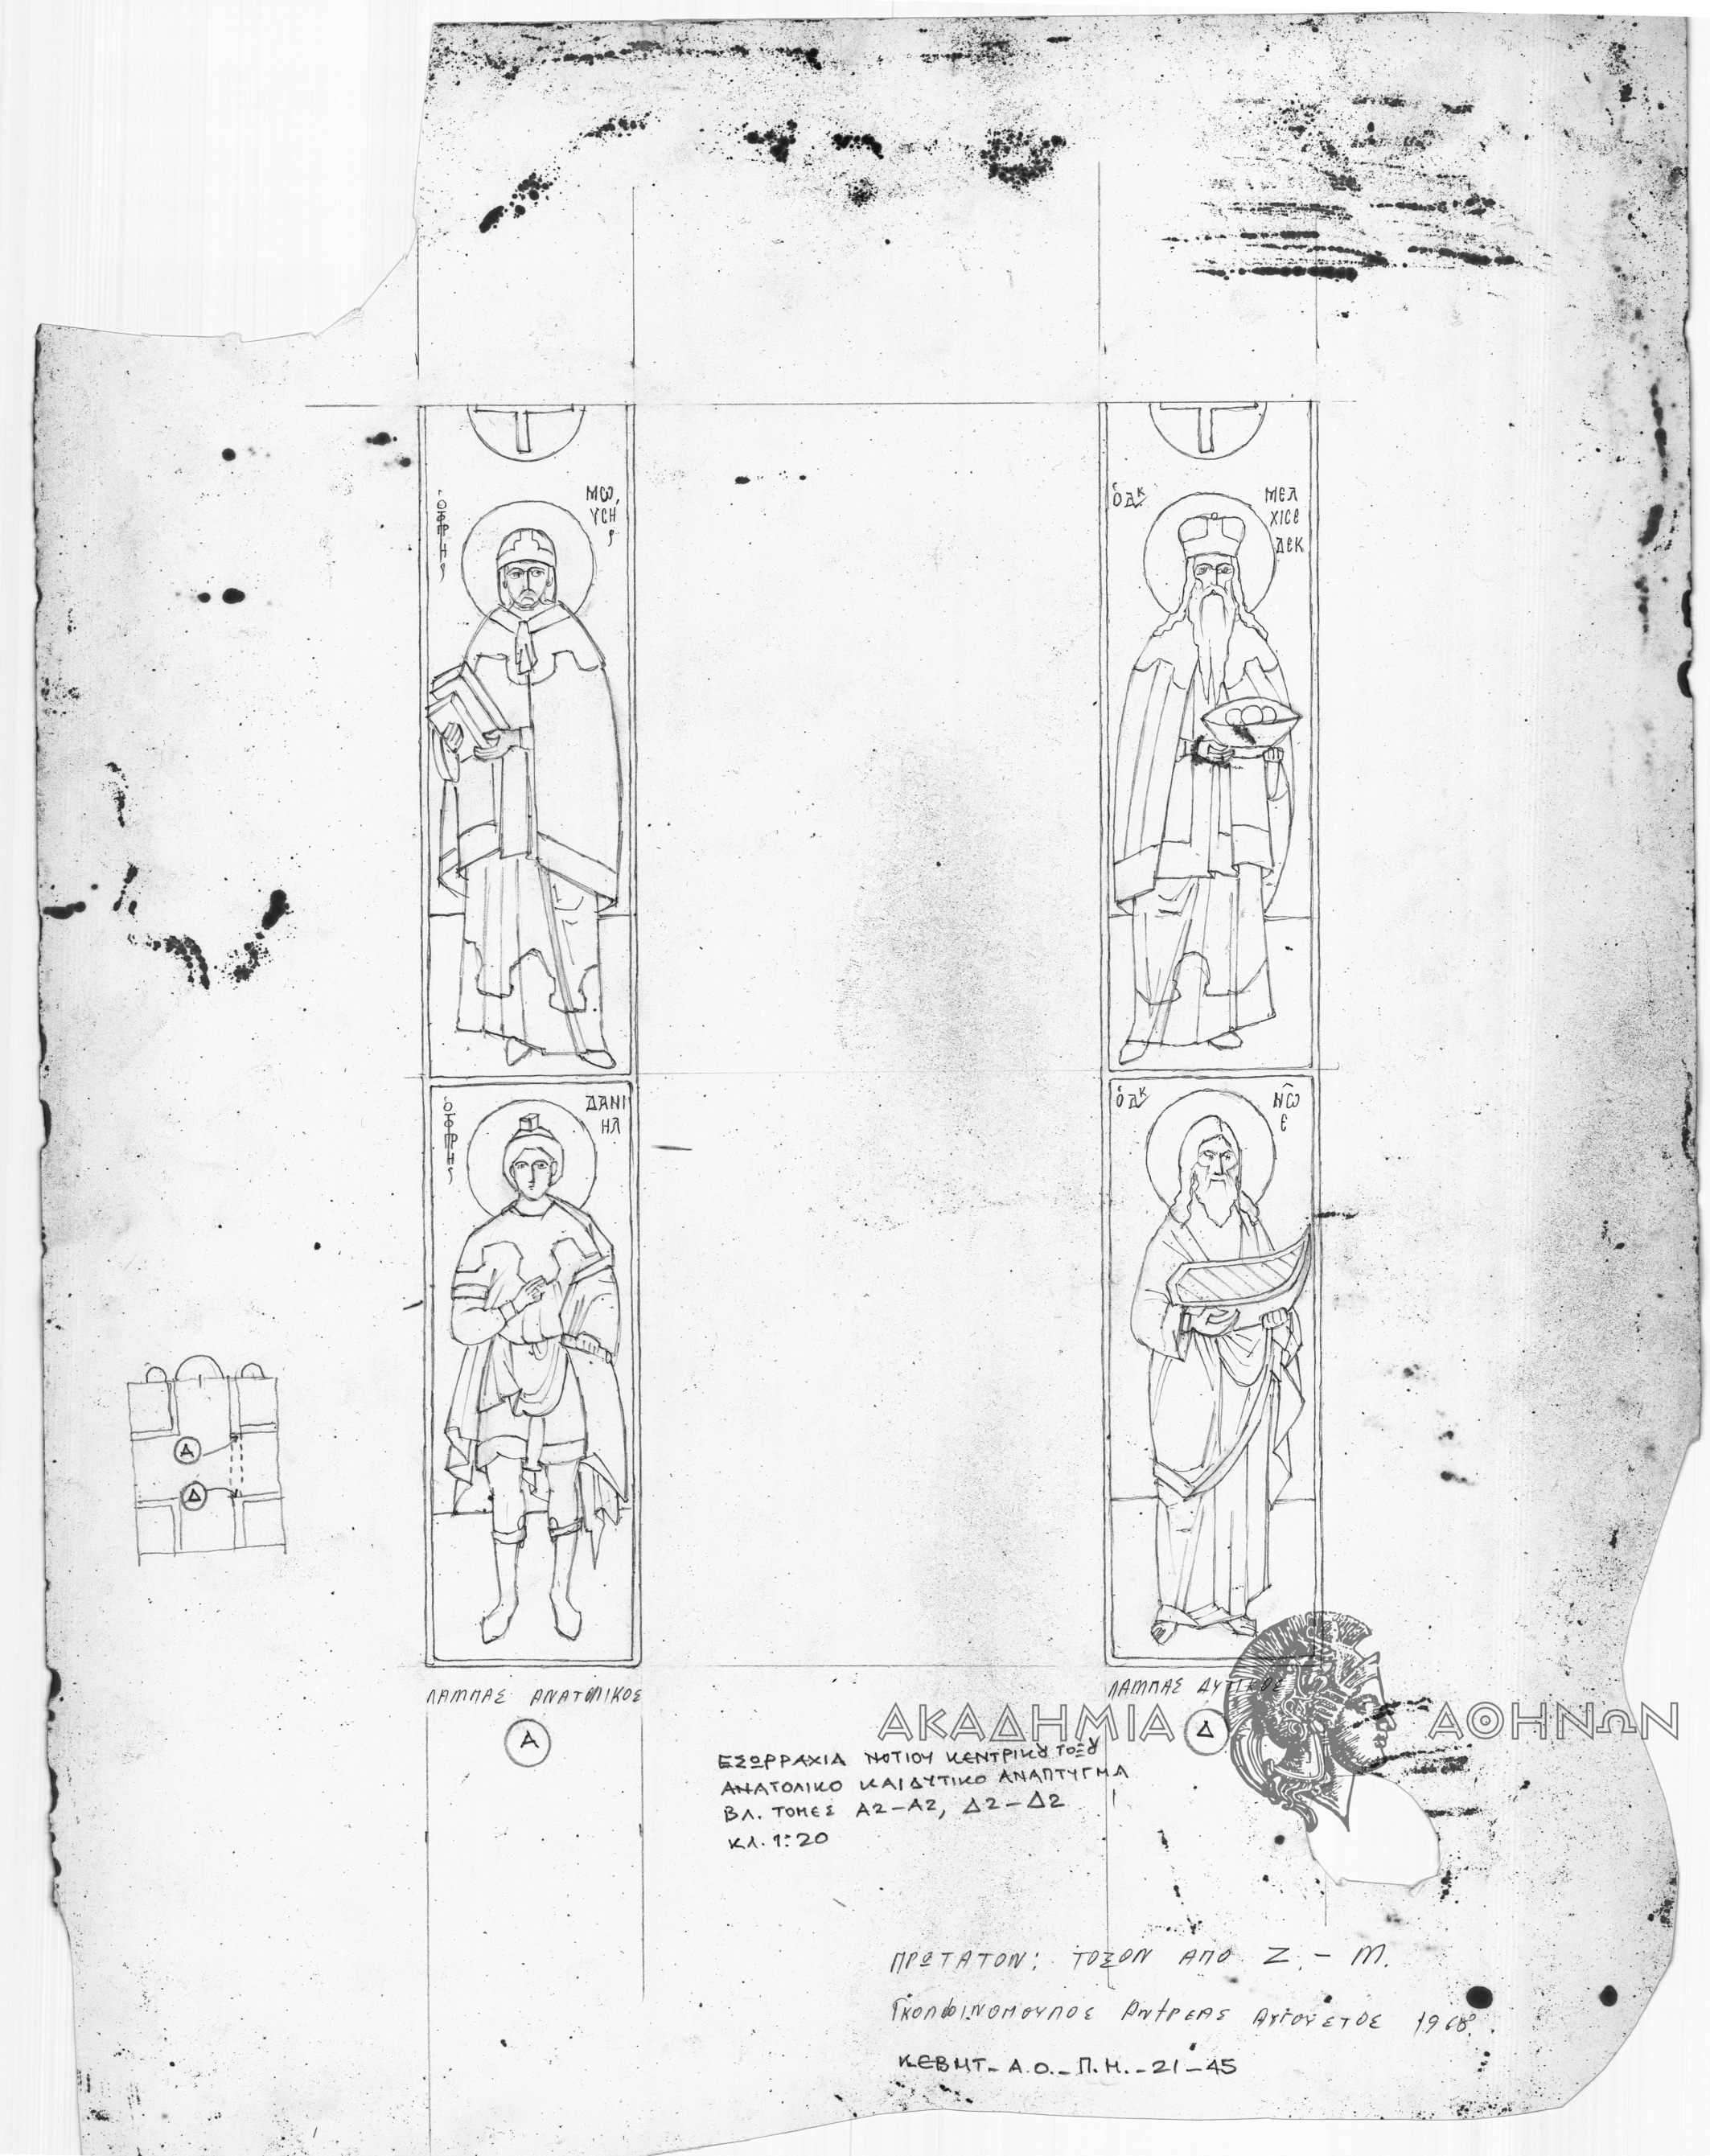 ΜΩ
ΥCΗ
ς
ὁ ΔΚ
ΜΕΛ
ΧΙCΕ
ΔΕΚ
ΔΑΝΙ
ΗΛ
ὁ ΔΚ
Νῶ
Ε
Α
Δ
ΛΑΜΠΑΣ ΑΝΑΤΟΛΙΚΟΣ
ΛΑΜΠΑΣ ΔΥΤΙΚΟΣ
Α
ΑΚΑΔΗΜΙΑ ΑΘΗΝΩΝ
Δ
ΕΣΩΡΡΑΧΙΑ ΝΟΤΙΟΥ ΚΕΝΤΡΙΚȢ ΤΟΞȢ
ΑΝΑΤΟΛΙΚΟ ΚΑΙ ΔΥΤΙΚΟ ΑΝΑΠΤΥΓΜΑ
ΒΛ. ΤΟΜΕΣ Α2-Α2, Δ2-Δ2
ΚΛ. 1:20
ΠΡΩΤΑΤΟΝ: ΤΟΞΟΝ ΑΠΟ Ζ. - Μ.
ΓΚΟΛΦΙΝΟΠΟΥΛΟΣ ΑΝΤΡΕΑΣ ΑΥΓΟΥΣΤΟΣ 1968.
ΚΕΒΜΤ-Α.Ο.-Π.Η.-21-45